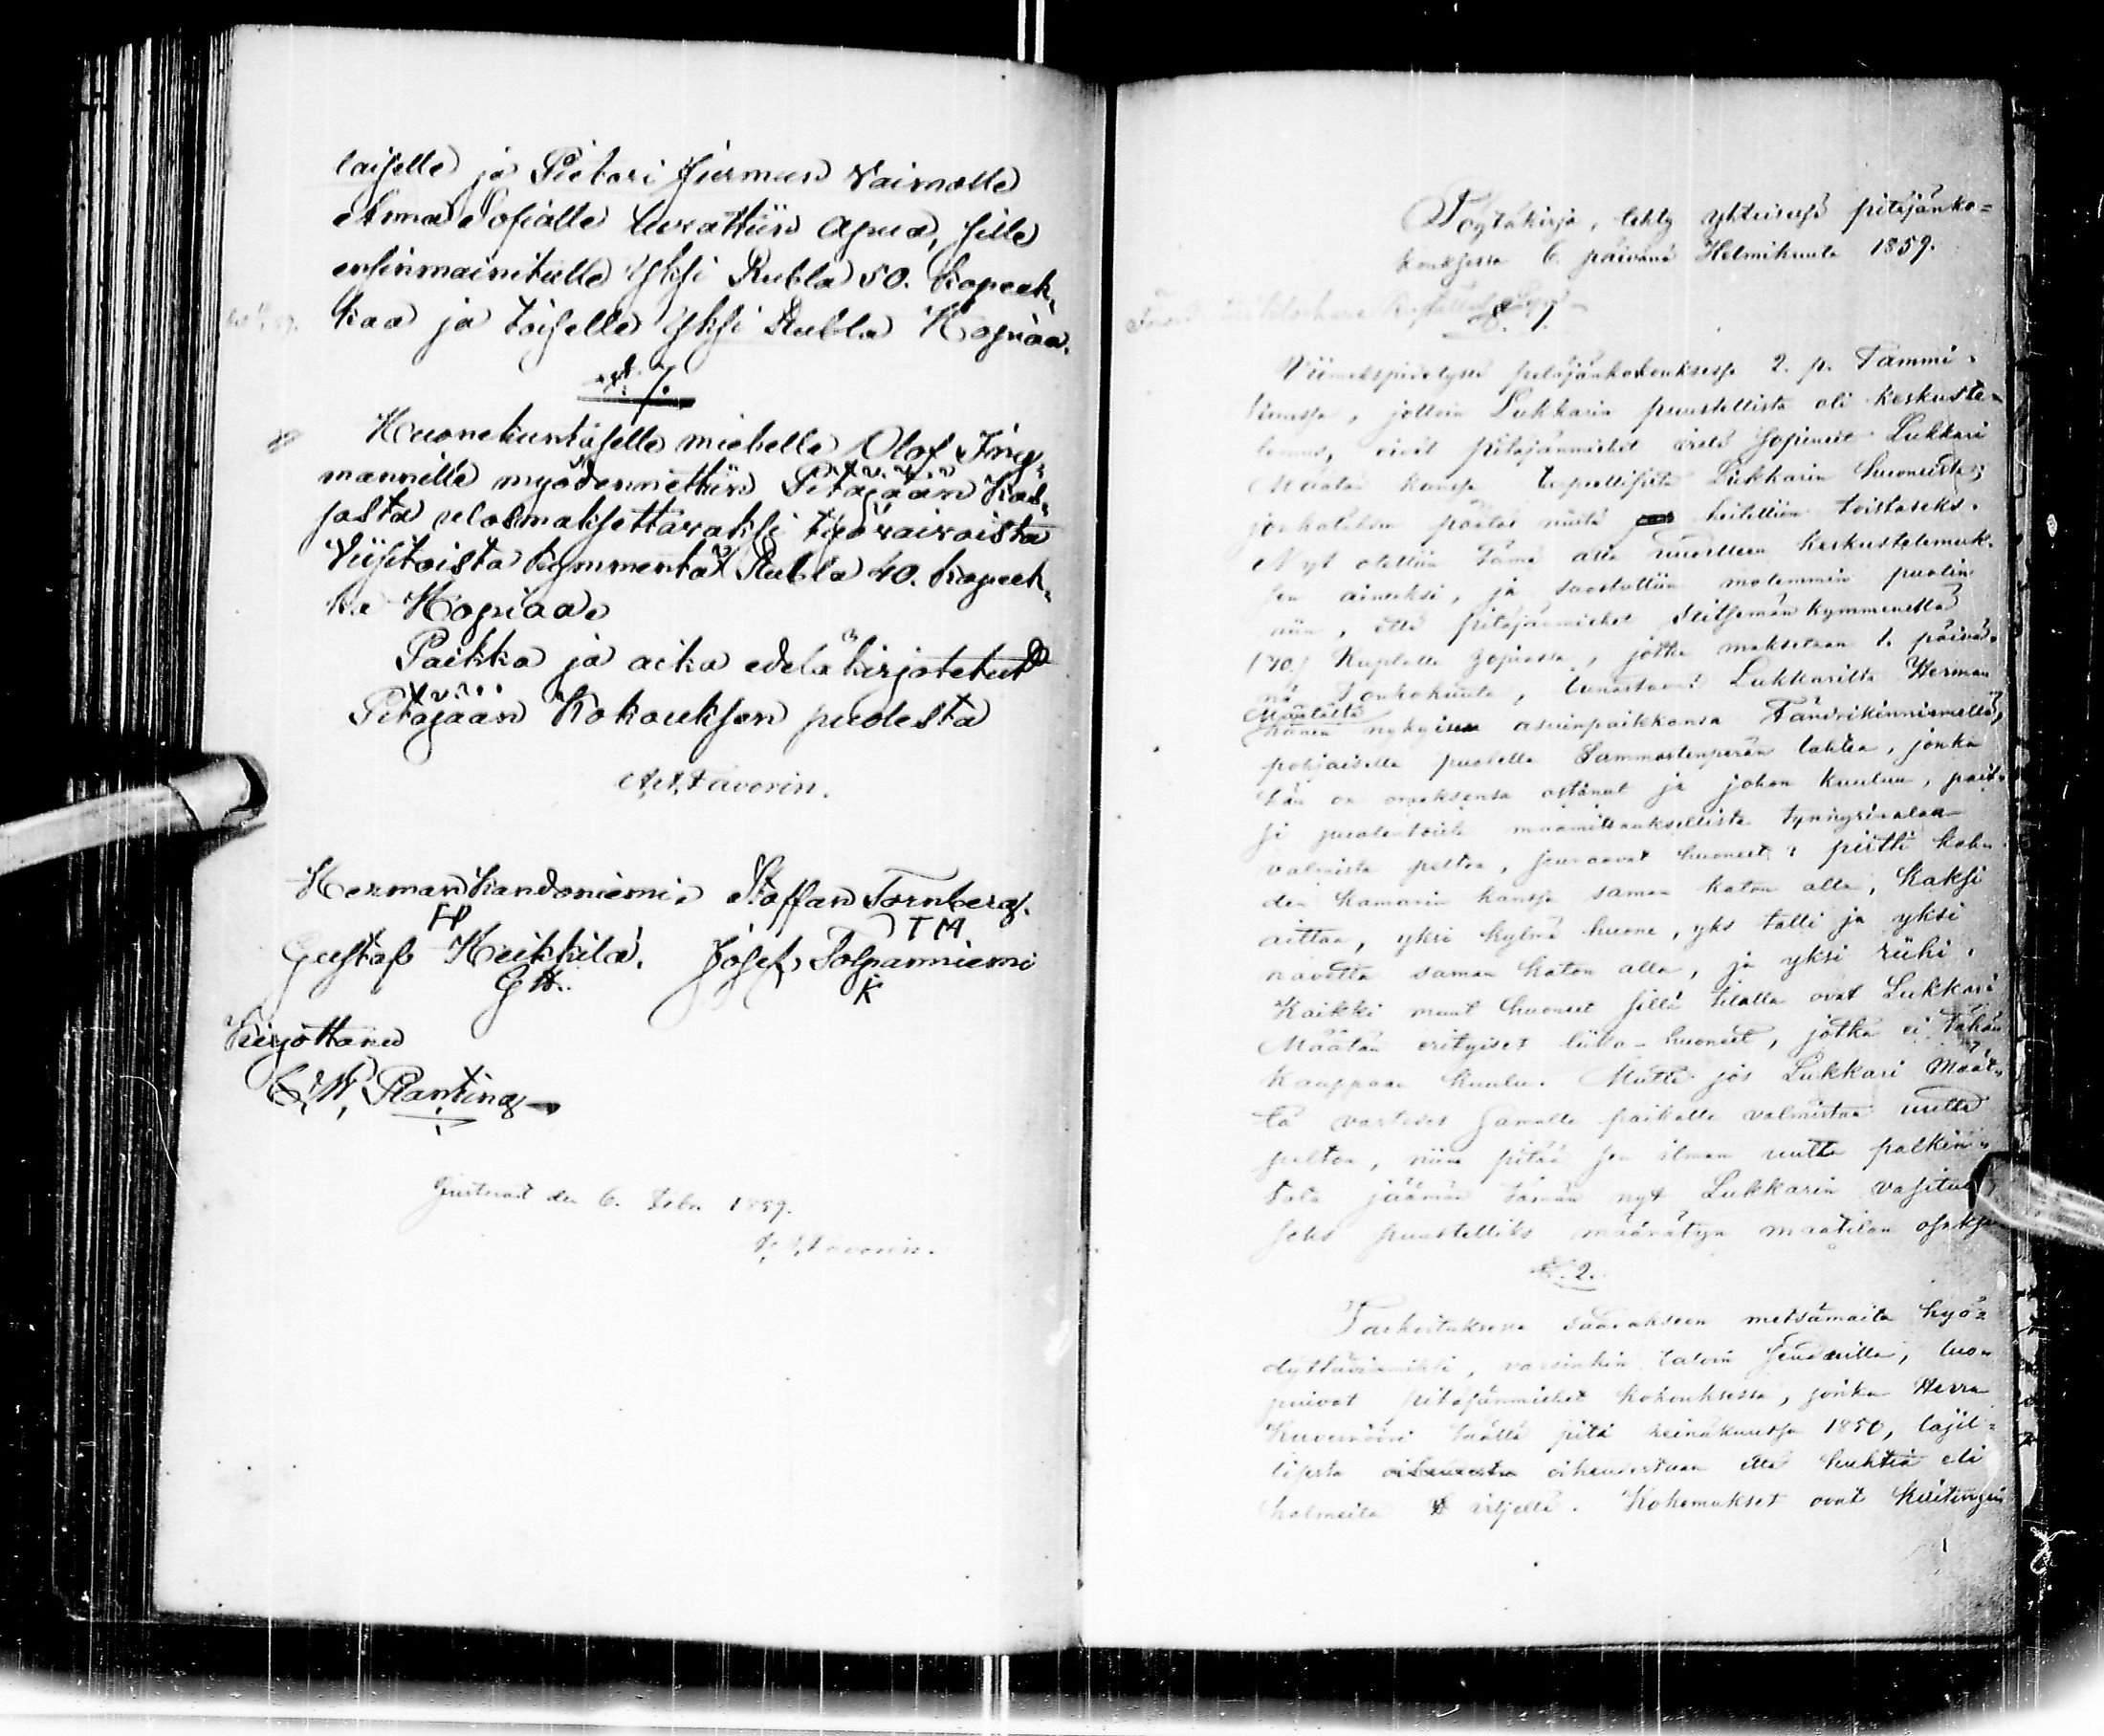 laiselle ja Pietari Jurmun Vaimolle
Anna Sofialle luvattiin apua, sille
ensinmainitulle Yksi Rubla 50. kopeek,
kaa ja toiselle Yksi Rubla Hopiaa.
§. 7.
Huonekuntaselle miehelle Olof Ing,
mannille myödennettiin Pitäjään Kas,
sasta ulosmaksettavaksi työvaivoista
Viisitoista kymmentä Rubla 40. kopeek,
ka Hopiaa
Paikka ja aika edelä kirjotetut
Pitäjään Kokouksen puolesta
A. Favorin.
Herman Kandoniemi, Staffan Tornberg.
TM
Gustaf Heikkilä. Josef Tolpanniemi
GH. K
Kirjottanu
C. W. Planting
Justerat den 6. Febr. 1859.
Favorin.
Pöytäkirja, tehty yhteisessä pitäjänko=
kouksessa 6. päivänä Helmikuuta 1859.
§. 1.
Viimekspidetyssä pitäjänkokouksessa 2. p. Tammi-
kuussa, jolloin Lukkarin puustellista oli keskuste-
lemus, eivät pitäjänmiehet vielä sopineet Lukkari
Määtän kanssa tarpeellisista Lukkarin huoneista;
jonkatähden päätös niistä heitettiin toistaseks.
Nyt otettiin tämä asia uudelleen keskustelemuk-
sen aineeksi, ja suostuttiin molemmin puolin
niin, että pitäjänmiehet Seitsemänkymmenellä
(70.) Ruplalla hopiassa, jotka maksetaan 1. päivä-
nä Toukokuuta, lunastavat Lukkarilta Herman
Määtältä
hänen nykyisen asuinpaikkansa
pohjaisella puolella Sammastenperän lahtea, jonka
hän on omaksensa ostanut ja johon kuuluu, pait-
si puolentoista maamittauksellista tynnyrinalaa
valmista peltoa, seuraavat huoneet: pirtti kah-
den kamarin kanssa saman katon alla, kaksi
aittaa, yksi kylmä huone, yks talli ja yksi
navetta saman katon alla, ja yksi riihi.
Kaikki muut huoneet sillä tilalla ovat Lukkari
Määtän erityiset liika-huoneet, jotka ei tähän
kauppaan kuulu. Mutta jos Lukkari Määt-
tä vastedes samalle paikalle valmistaa uutta
peltoa, niin pitää sen ilman uutta palkin-
tota jäämän tämän nyt Lukkarin
seks puustelliks määrätyn maatilan osaksi
§. 2.
Tarkoituksessa metsämaita hyö=
, varsinkin talvin seuduilla, luo-
puivat pitäjänmiehet kokouksessa, jonka Herra
Kuvernööri täällä piti heinäkuussa 1850, lajil=
lisesta oikeudestaan että huhtia eli
halmeita viljellä. Kokemukset ovat kuitengin